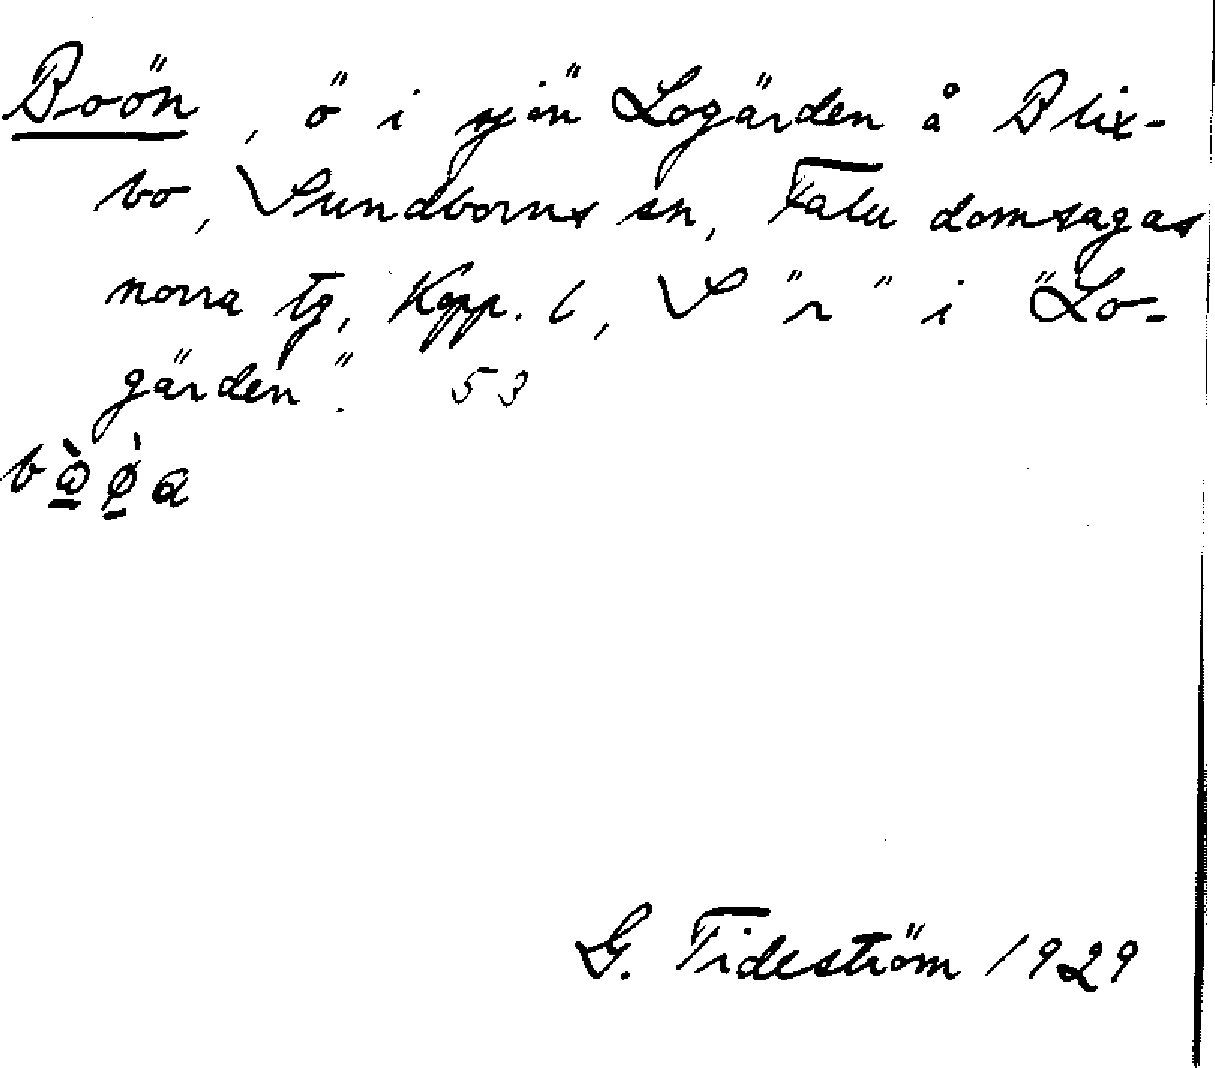 Boön, ö i sjön Logärden å Blix-
bo, Sundborns sn, Falu domsagas
norra tg, Kopp. l, S "r" i "Lo-
gärden". 53
G. Tideström 1929